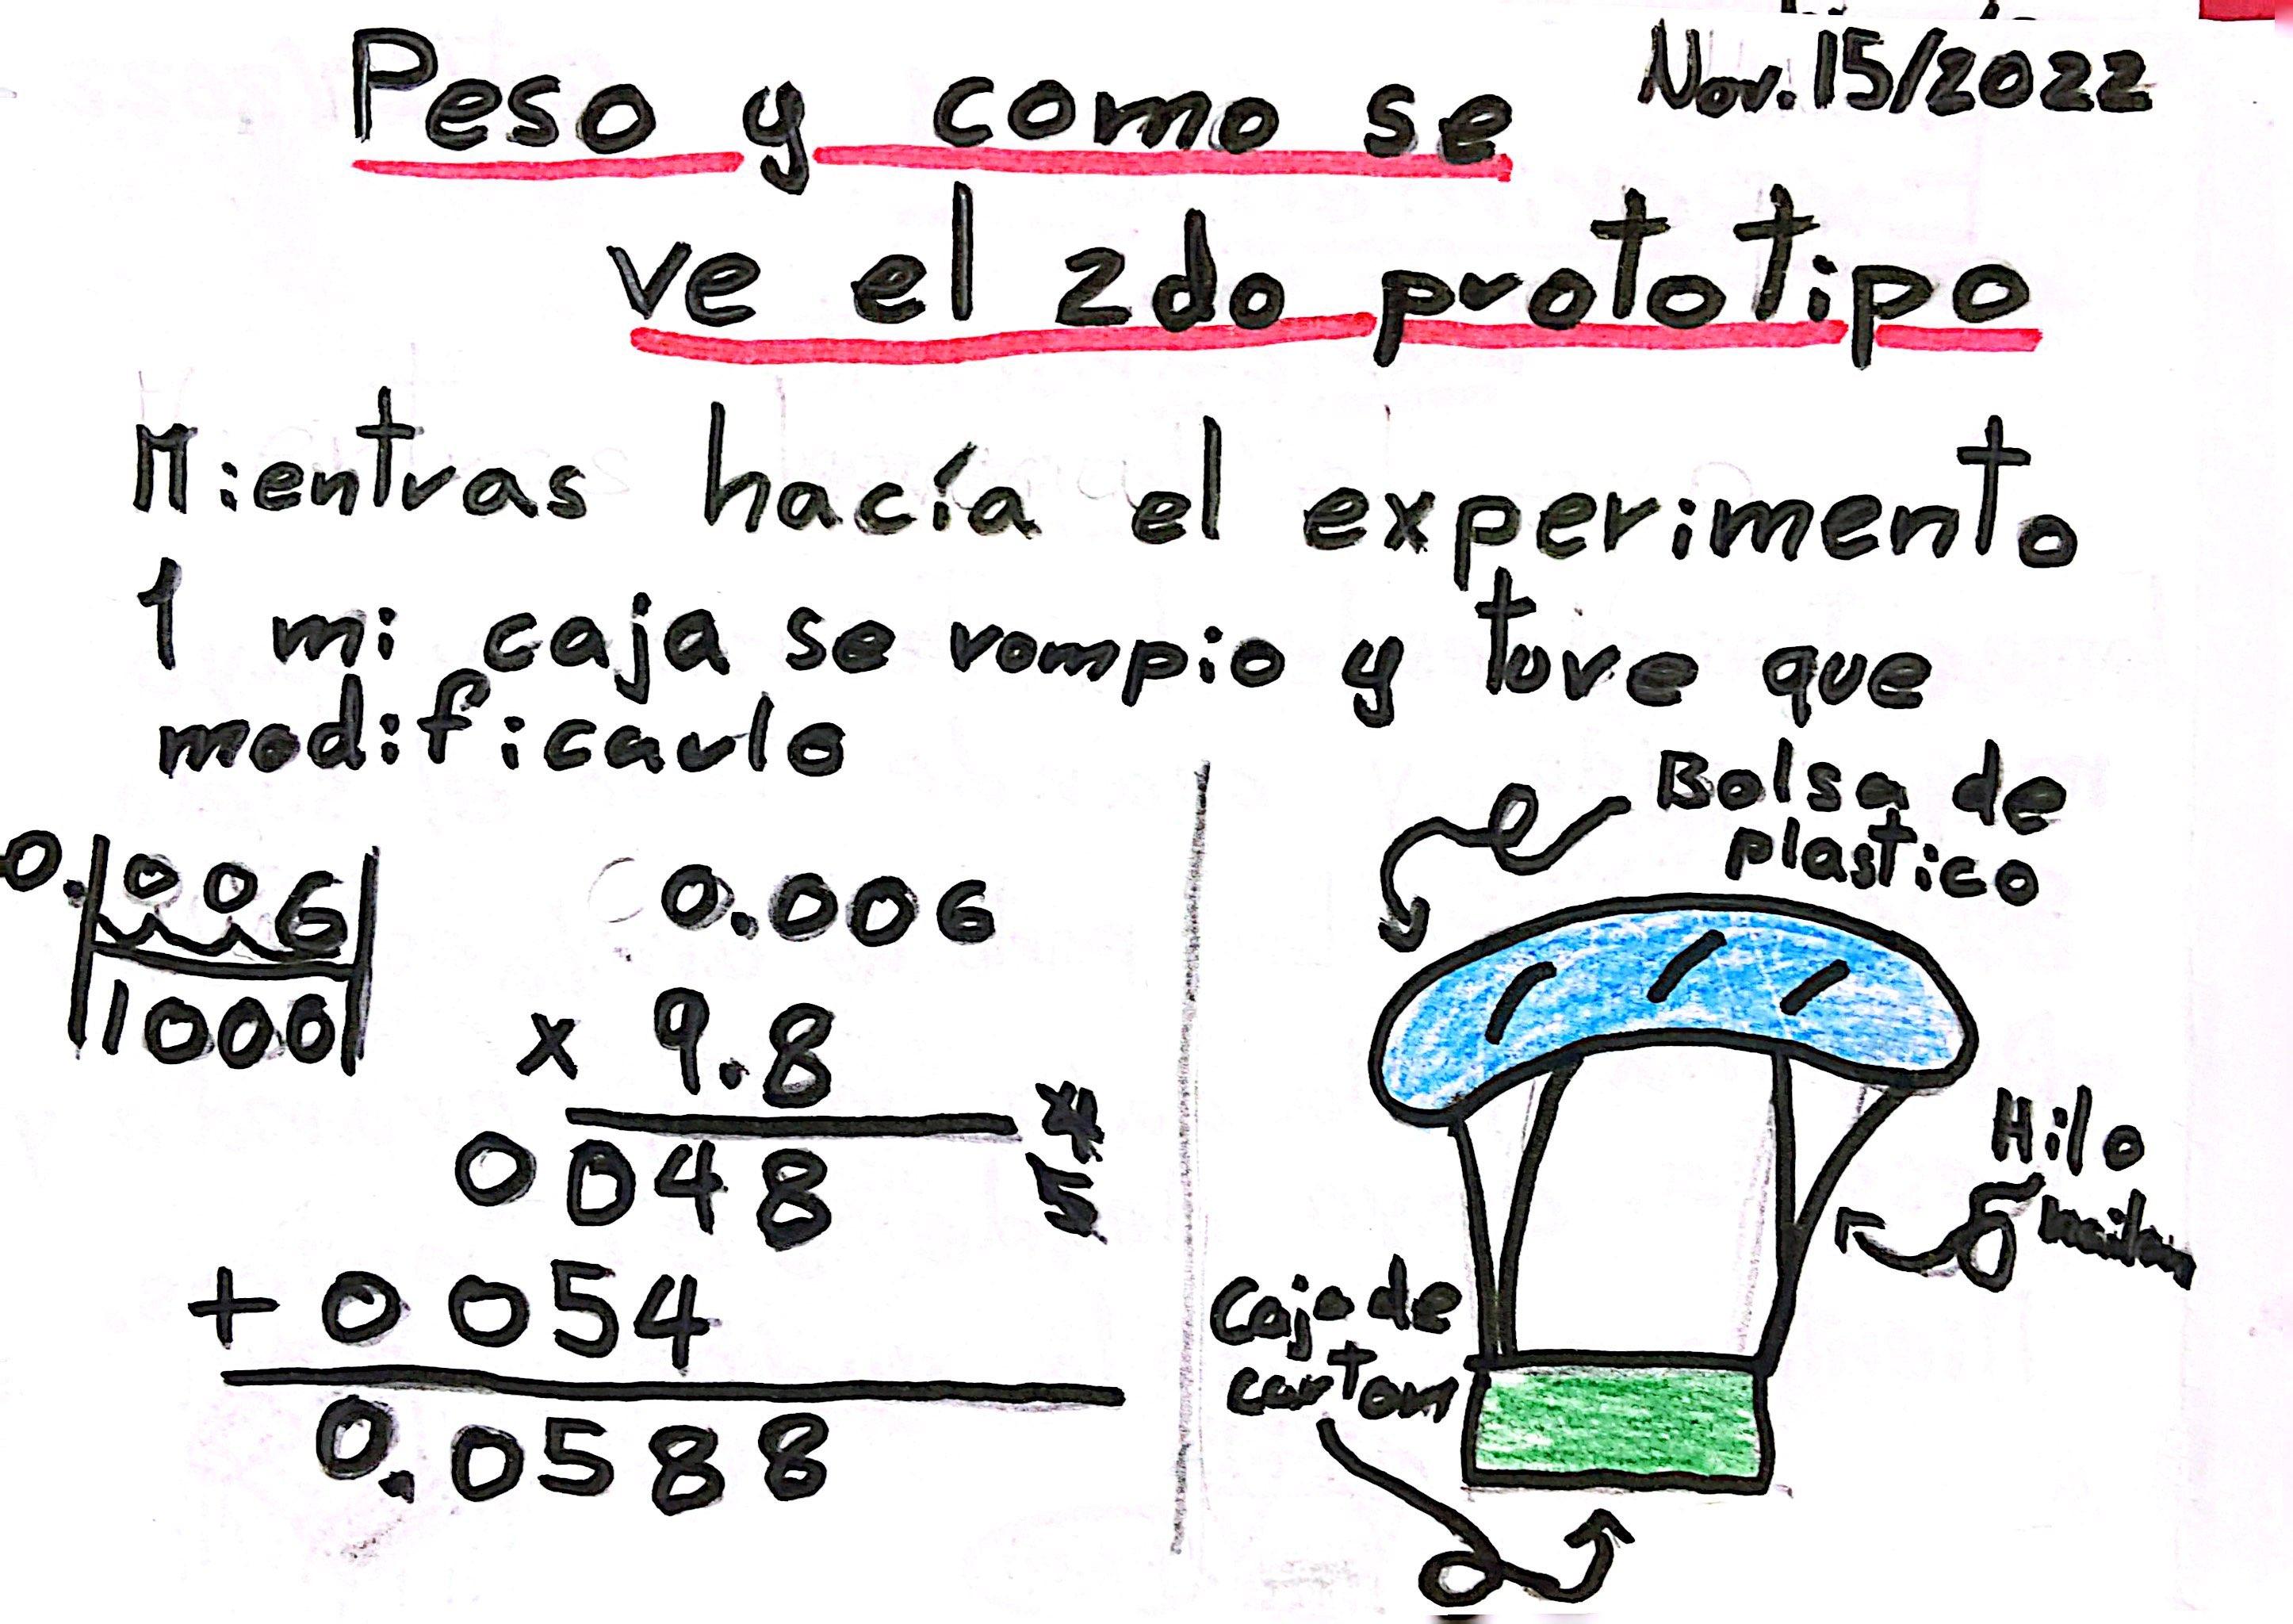 Nov. 15/2022
Peso y como se
ve el 2do prototipo
Mientras hacía el experimento
1 mi caja se rompio y tuve que
modificarlo
0.006
1000
0.006
x 9.8
0048
+ 0054
0.0588
54
Bolsa de
plastico
Hilo
Caja de
carton